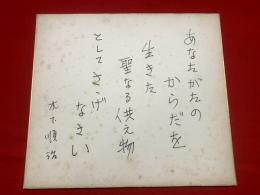 あなたがたの
からだを
生きた
聖なる供え物
としてささげ
なさい
木下順治